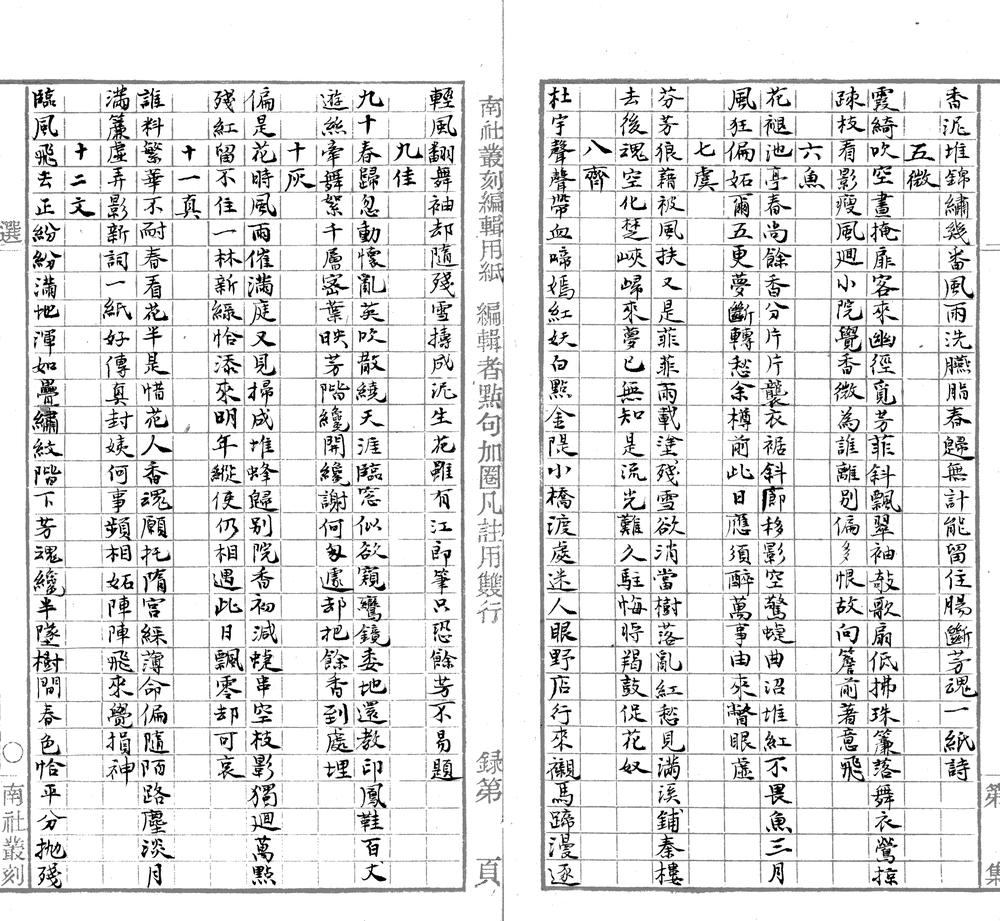 第 集
香泥堆錦繡幾番風雨洗臙脂春歸無計能留住腸斷芳魂一紙詩
五微
霞綺吹空晝掩扉客來幽徑覓芳菲斜飄翠袖敧歌扇低拂珠簾落舞衣鶯掠
疎枝看影瘦風迴小院覺香微為誰離別偏多恨故向簷前著意飛
六魚
花褪池亭春尚餘香分片片襲衣裾斜廊移影空驚蜨曲沼堆紅不畏魚三月
風狂偏妬爾五更夢斷轉愁余樽前此日應須醉萬事由來瞥眼虛
七虞
芬芳狼藉被風扶又是菲菲雨載塗殘雪欲消當樹落亂紅愁見滿溪鋪秦樓
去後魂空化楚峽歸來夢已無知是流光難久駐悔將羯鼓促花奴
八齊
杜宇聲聲帶血啼嫣紅妖白點金隄小橋渡處迷人眼野店行來襯馬蹄漫逐
南社叢刻編輯用紙 編輯者點句加圈凡註用雙行 錄第 頁
輕風翻舞袖却隨殘雪擣成泥生花雖有江郎筆只恐餘芳不易題
九佳
九十春歸忽動懷亂英吹散繞天涯臨窓似欲窺鸞鏡委地還教印鳳鞋百丈
遊絲牽舞絮千層密葉映芳階纔開纔謝何匆遽却把餘香到處埋
十灰
偏是花時風雨催滿庭又見掃成堆蜂歸別院香初減蜨串空枝影獨迴萬點
殘紅留不住一林新綠恰添來明年縱使仍相遇此日飄零却可哀
十一真
誰料繁華不耐春看花半是惜花人香魂願托隋宮綵薄命偏隨陌路塵淡月
滿簾虛弄影新詞一紙好傳真封姨何事頻相妬陣陣飛來覺損神
十二文
臨風飛去正紛紛滿地渾如疊繡紋階下芳魂纔半墜樹間春色恰平分拋殘
選 南社叢刻